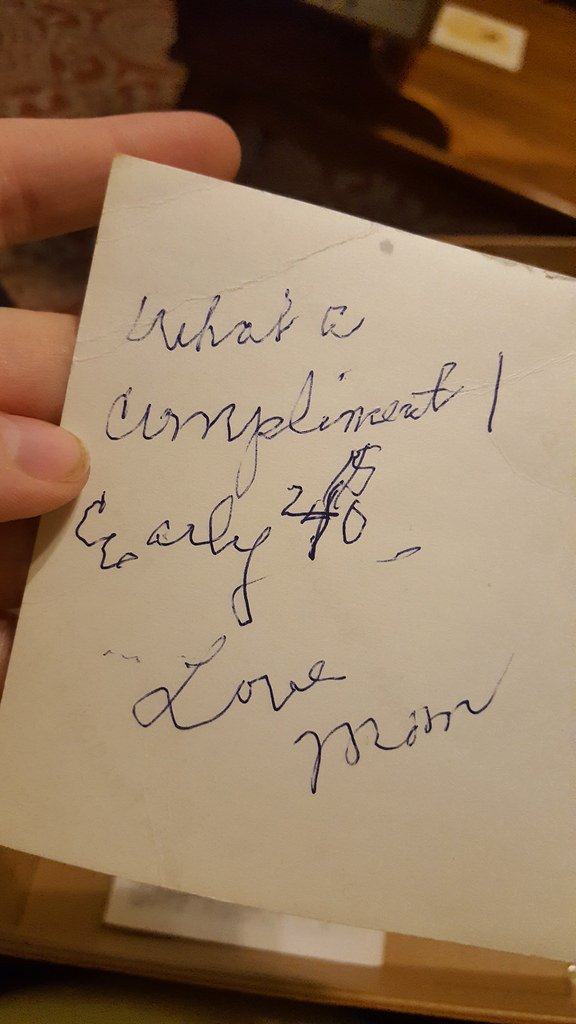 What a
Compliment!
Early 40
Love
Mom